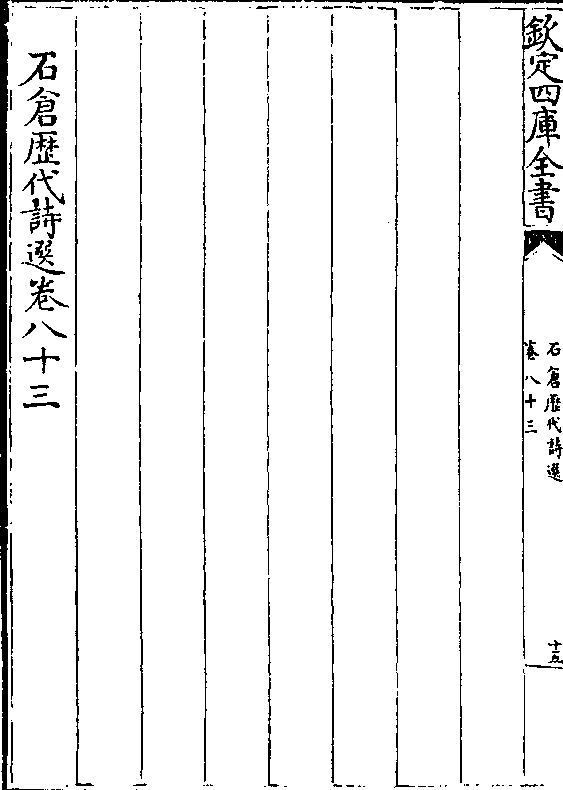 欽定四庫全書
石倉歴代詩選
卷八十三
十五
石倉歴代詩選卷八十三